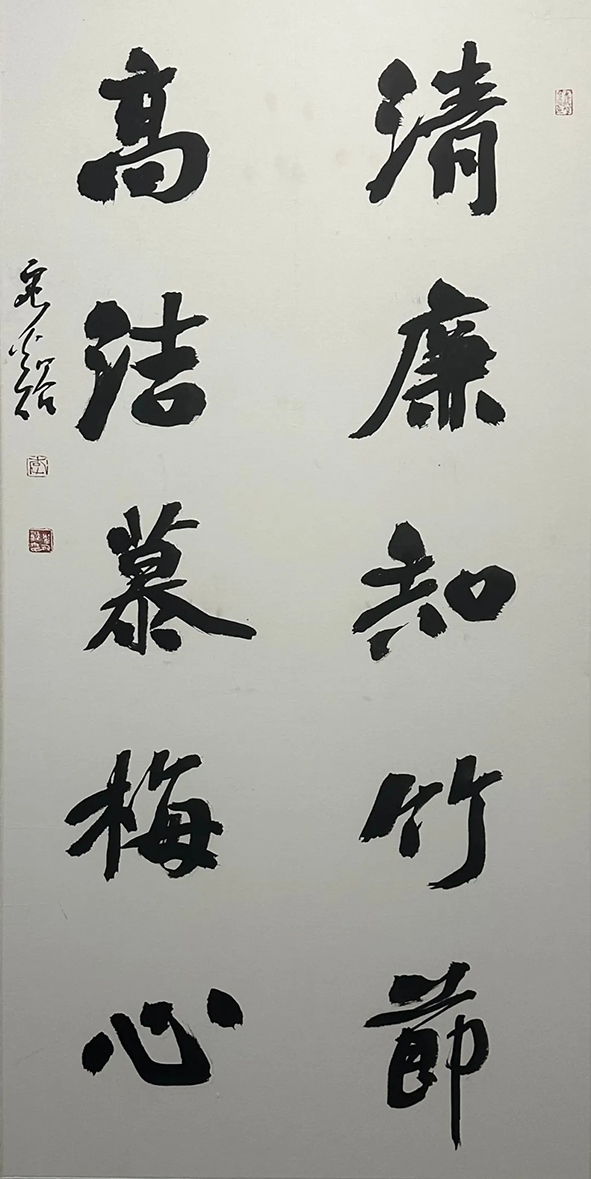 清廉知竹節
高洁慕梅心